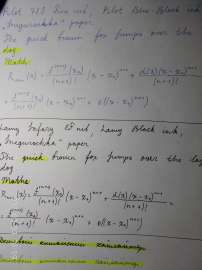 Pilot 78G Fine nib, Pilot Blue-Black ink,
"Snegurochka" paper
The quick brown fox jumps over the
dog
Maths:
R_{n+1}(x) = \frac{f^{(n+1)}(x_0)}{(n+1)!}(x - x_0)^{n+1} + \frac{α(x)(x - x_0)^{n+1}}{(n+1)!} =
= \frac{f^{(n+1)}(x_0)}{(n+1)!}(x - x_0)^{n+1} + o((x - x_0)^{n+1})
Lamy Safari EF nib, Lamy Black ink,
"Snegurochka" paper
The quick brown fox jumps over the lazy
dog
Maths
R_{n+1}(x) = \frac{f^{(n+1)}(x_0)}{(n+1)!}(x - x_0)^{n+1} + \frac{α(x)(x - x_0)^{n+1}}{(n+1)!} =
= \frac{f^{(n+1)}(x_0)}{(n+1)!}(x - x_0)^{n+1} + o((x - x_0)^{n+1})